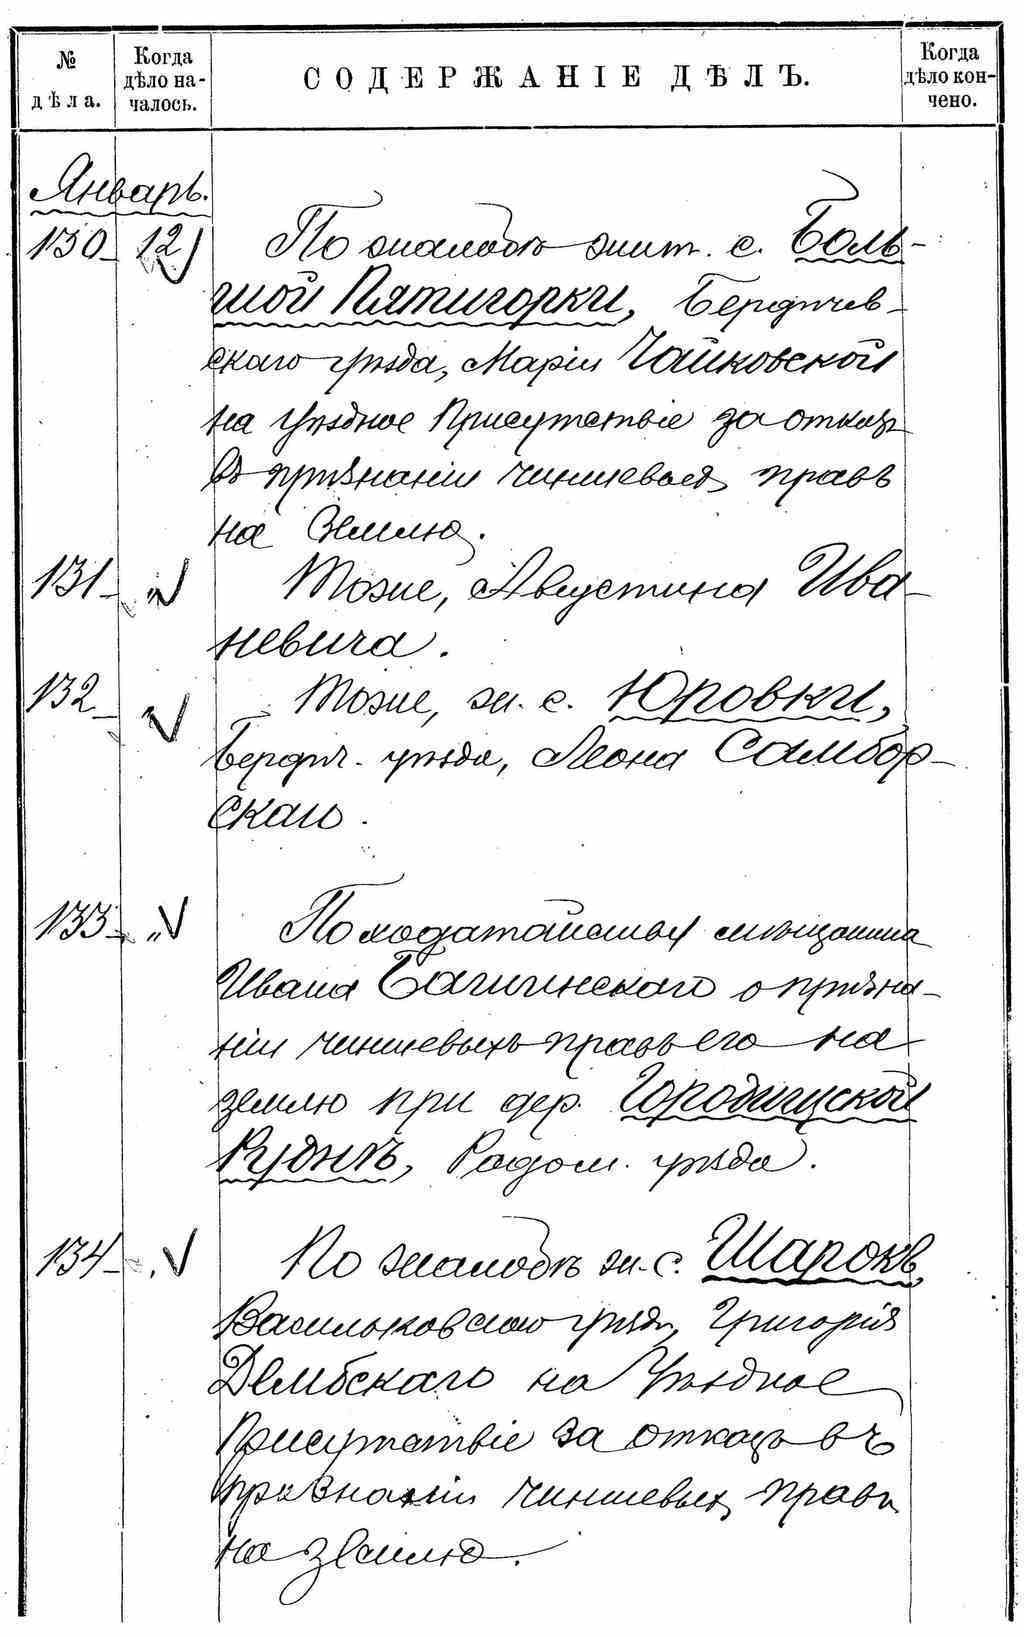 № дѣла.
Когда дѣло началось.
СОДЕРЖАНІЕ ДѢЛЪ.
Когда дѣло кончено.
Январь.
130 12) По жалобѣ жит. с. Боль-
шой Пятигорки, Бердичев-
скаго уѣзда, Маріи Чайковской
на Уѣздное Присутствіе за отказъ
въ признаніи чиншевыхъ правъ
на землю.
131 " Тоже, Августина Ива-
невича.
132 " Тоже, ж. с. Юровки,
Бердич. уѣзда, Леона Самбор-
скаго.
133 " По ходатайству мѣщанина
Ивана Багинскаго о призна-
ніи чиншевыхъ правъ его на
землю при дер. Городищской
Руднѣ, Радом. уѣзда.
134 " По жалобѣ ж. с. Шарокъ,
Васильковскаго уѣзда, Григорія
Дембскаго на Уѣздное
Присутствіе за отказъ въ
признаніи чиншевыхъ правъ
на землю.